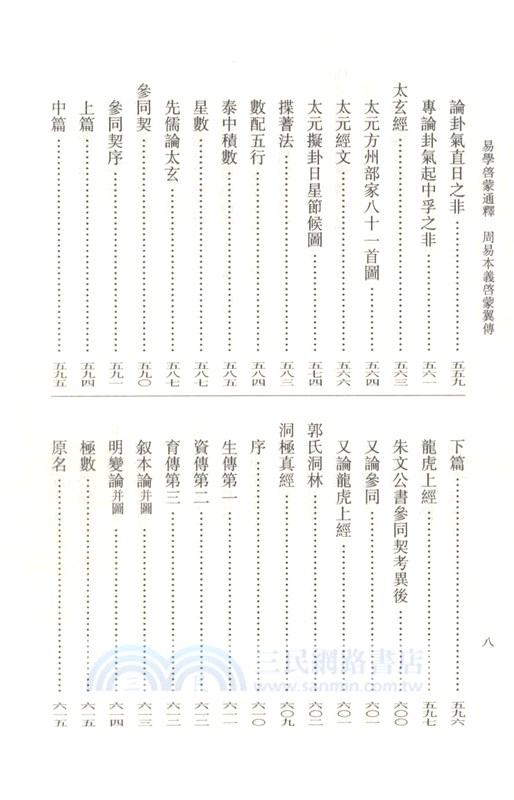 易學啓蒙通釋　周易本義啓蒙翼傳
論卦氣直日之非……五五九
專論卦氣起中孚之非……五六一
太玄經……五六三
太元方州部家八十一首圖……五六四
太元經文……五六六
太元擬卦日星節候圖……五七四
揲蓍法……五八三
數配五行……五八四
泰中積數……五八五
星數……五八七
先儒論太玄……五八七
參同契……五九〇
參同契序……五九一
上篇……五九四
中篇……五九五
下篇……五九六
龍虎上經……五九七
朱文公書參同契考異後……六〇〇
又論參同……六〇一
又論龍虎上經……六〇一
郭氏洞林……六〇二
洞極真經……六〇九
序……六一〇
生傳第一……六一一
資傳第二……六一二
育傳第三……六一二
叙本論并圖……六一三
明變論并圖……六一四
極數……六一五
原名……六一五
八
三民網路書店
www.sanmin.com.tw